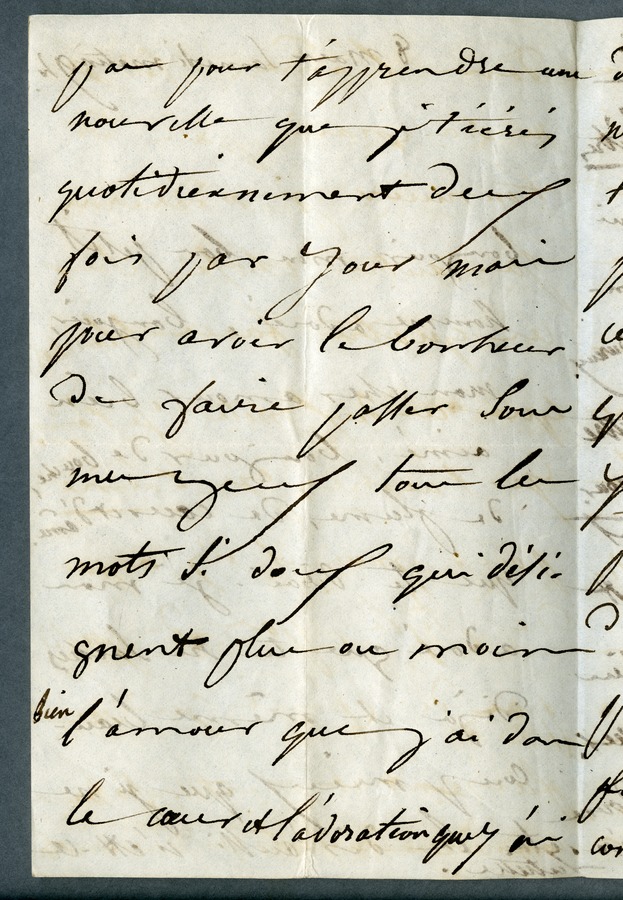 pas pour t'apprendre une
nouvelle que je t'écris
quotidiennement deux
fois par jour mais
pour avoir le bonheur
de faire passer sous
mes yeux tous les
mots si doux qui dési-
gnent plus ou moins
bien l'amour que j'ai dans
le cœur et l'adoration que j'ai